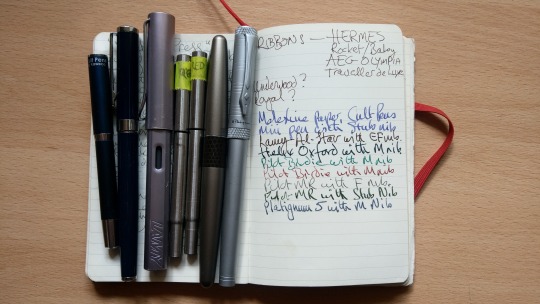 RIBBONS — HERMES
Rocket/Baby
AEG-OLYMPIA
Traveller de Luxe
Underwood?
Royal?
Moleskine paper, Cult Pens
Mini pen with Stub nib
Lamy Al-Star with EF nib
Italix Oxford with M nib
Pilot Birdie with M nib
Pilot Birdie with M nib
Pilot MR with F nib
Pilot MR with Stub Nib
Platignum 5 with M Nib
LAMY